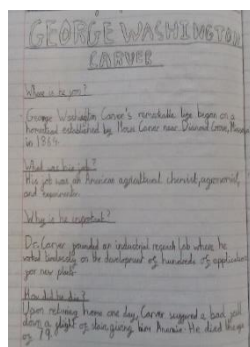 GEORGE WASHINGTON
CARVER
Where is he from?
George Washington Carver's remarkable life began on a
homestead established by Moses Carver near Diamond Grove,
in 1864
What was his job?
His job was an American agricultural chemist, agronomist,
and experimenter
Why is he important?
Dr. Carver founded an industrial research lab where he
worked tirelessly on the development of hundreds of applications
for new plants
How did he die?
Upon returning home one day, Carver suffered a bad fall
down a flight of stairs, giving him He died
of 79.